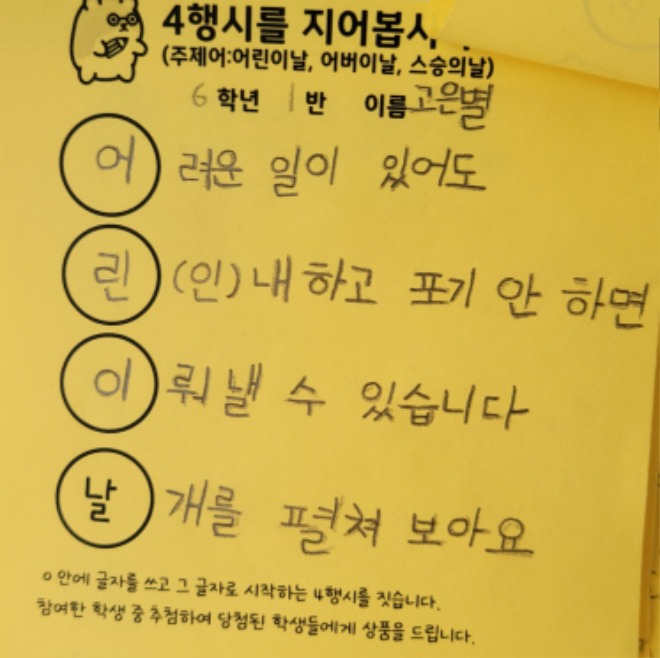 4행시를 지어봅시
(주제어:어린이날, 어버이날, 스승의날)
6 학년 1 반 이름 고은별
어 려운 일이 있어도
린 (인)내하고 포기 안 하면
이 뤄낼 수 있습니다
날 개를 펼쳐 보아요
ㅇ 안에 글자를 쓰고 그 글자로 시작하는 4행시를 짓습니다.
참여한 학생 중 추첨하여 당첨된 학생들에게 상품을 드립니다.